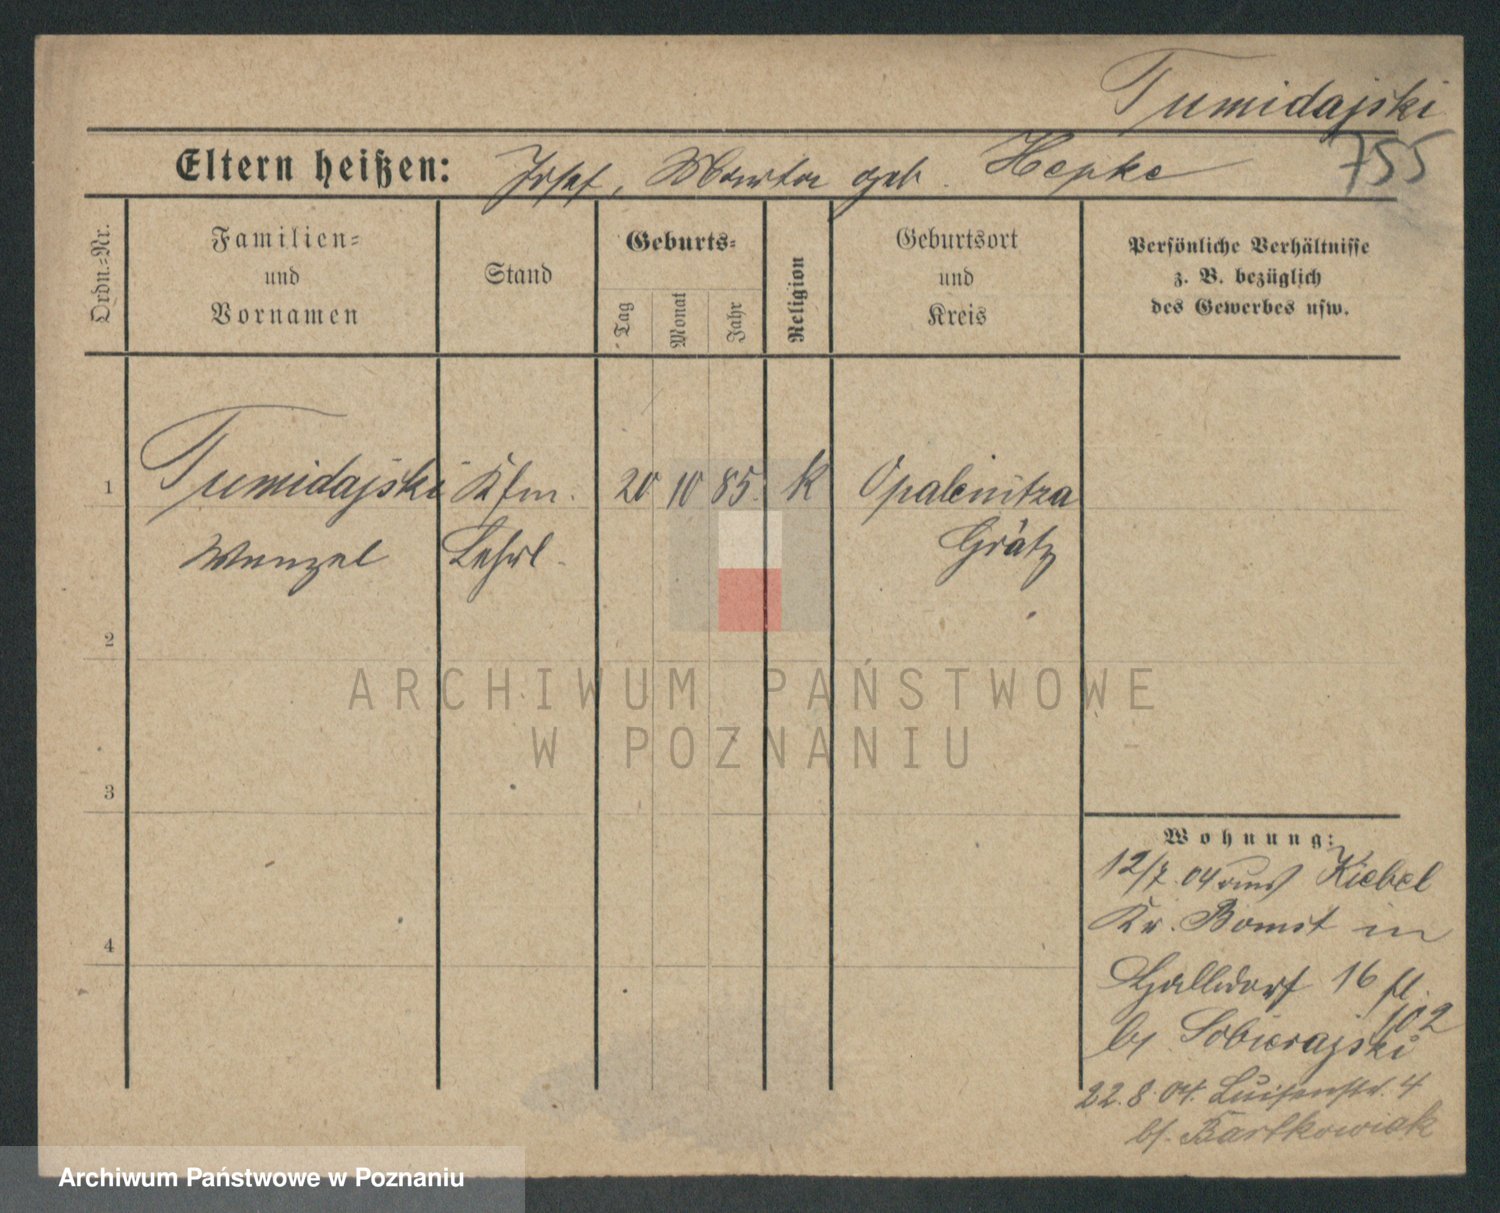 Tumidajski
755
Eltern heißen: Josef, geb. Hepke
Ordn.-Nr.
Familien-
und
Vornamen
Stand
Geburts-
Tag
Monat
Jahr
Religion
Geburtsort
und
Kreis
Persönliche Verhältnisse
z. B. bezüglich
des Gewerbes usw.
1 Tumidajski Kfm. 20 10 85. k Opalenitza
Wenzel Lehrl. Grätz
2
3
4
Wohnung:
12/7. 04 aus Kiebel
Kr. Bomst in
16 fl.
102
bs Sobierajski
22.8.04. Luisenstr. 4
bs. Bartkowiak
ARCHIWUM PAŃSTWOWE
W POZNANIU
Archiwum Państwowe w Poznaniu